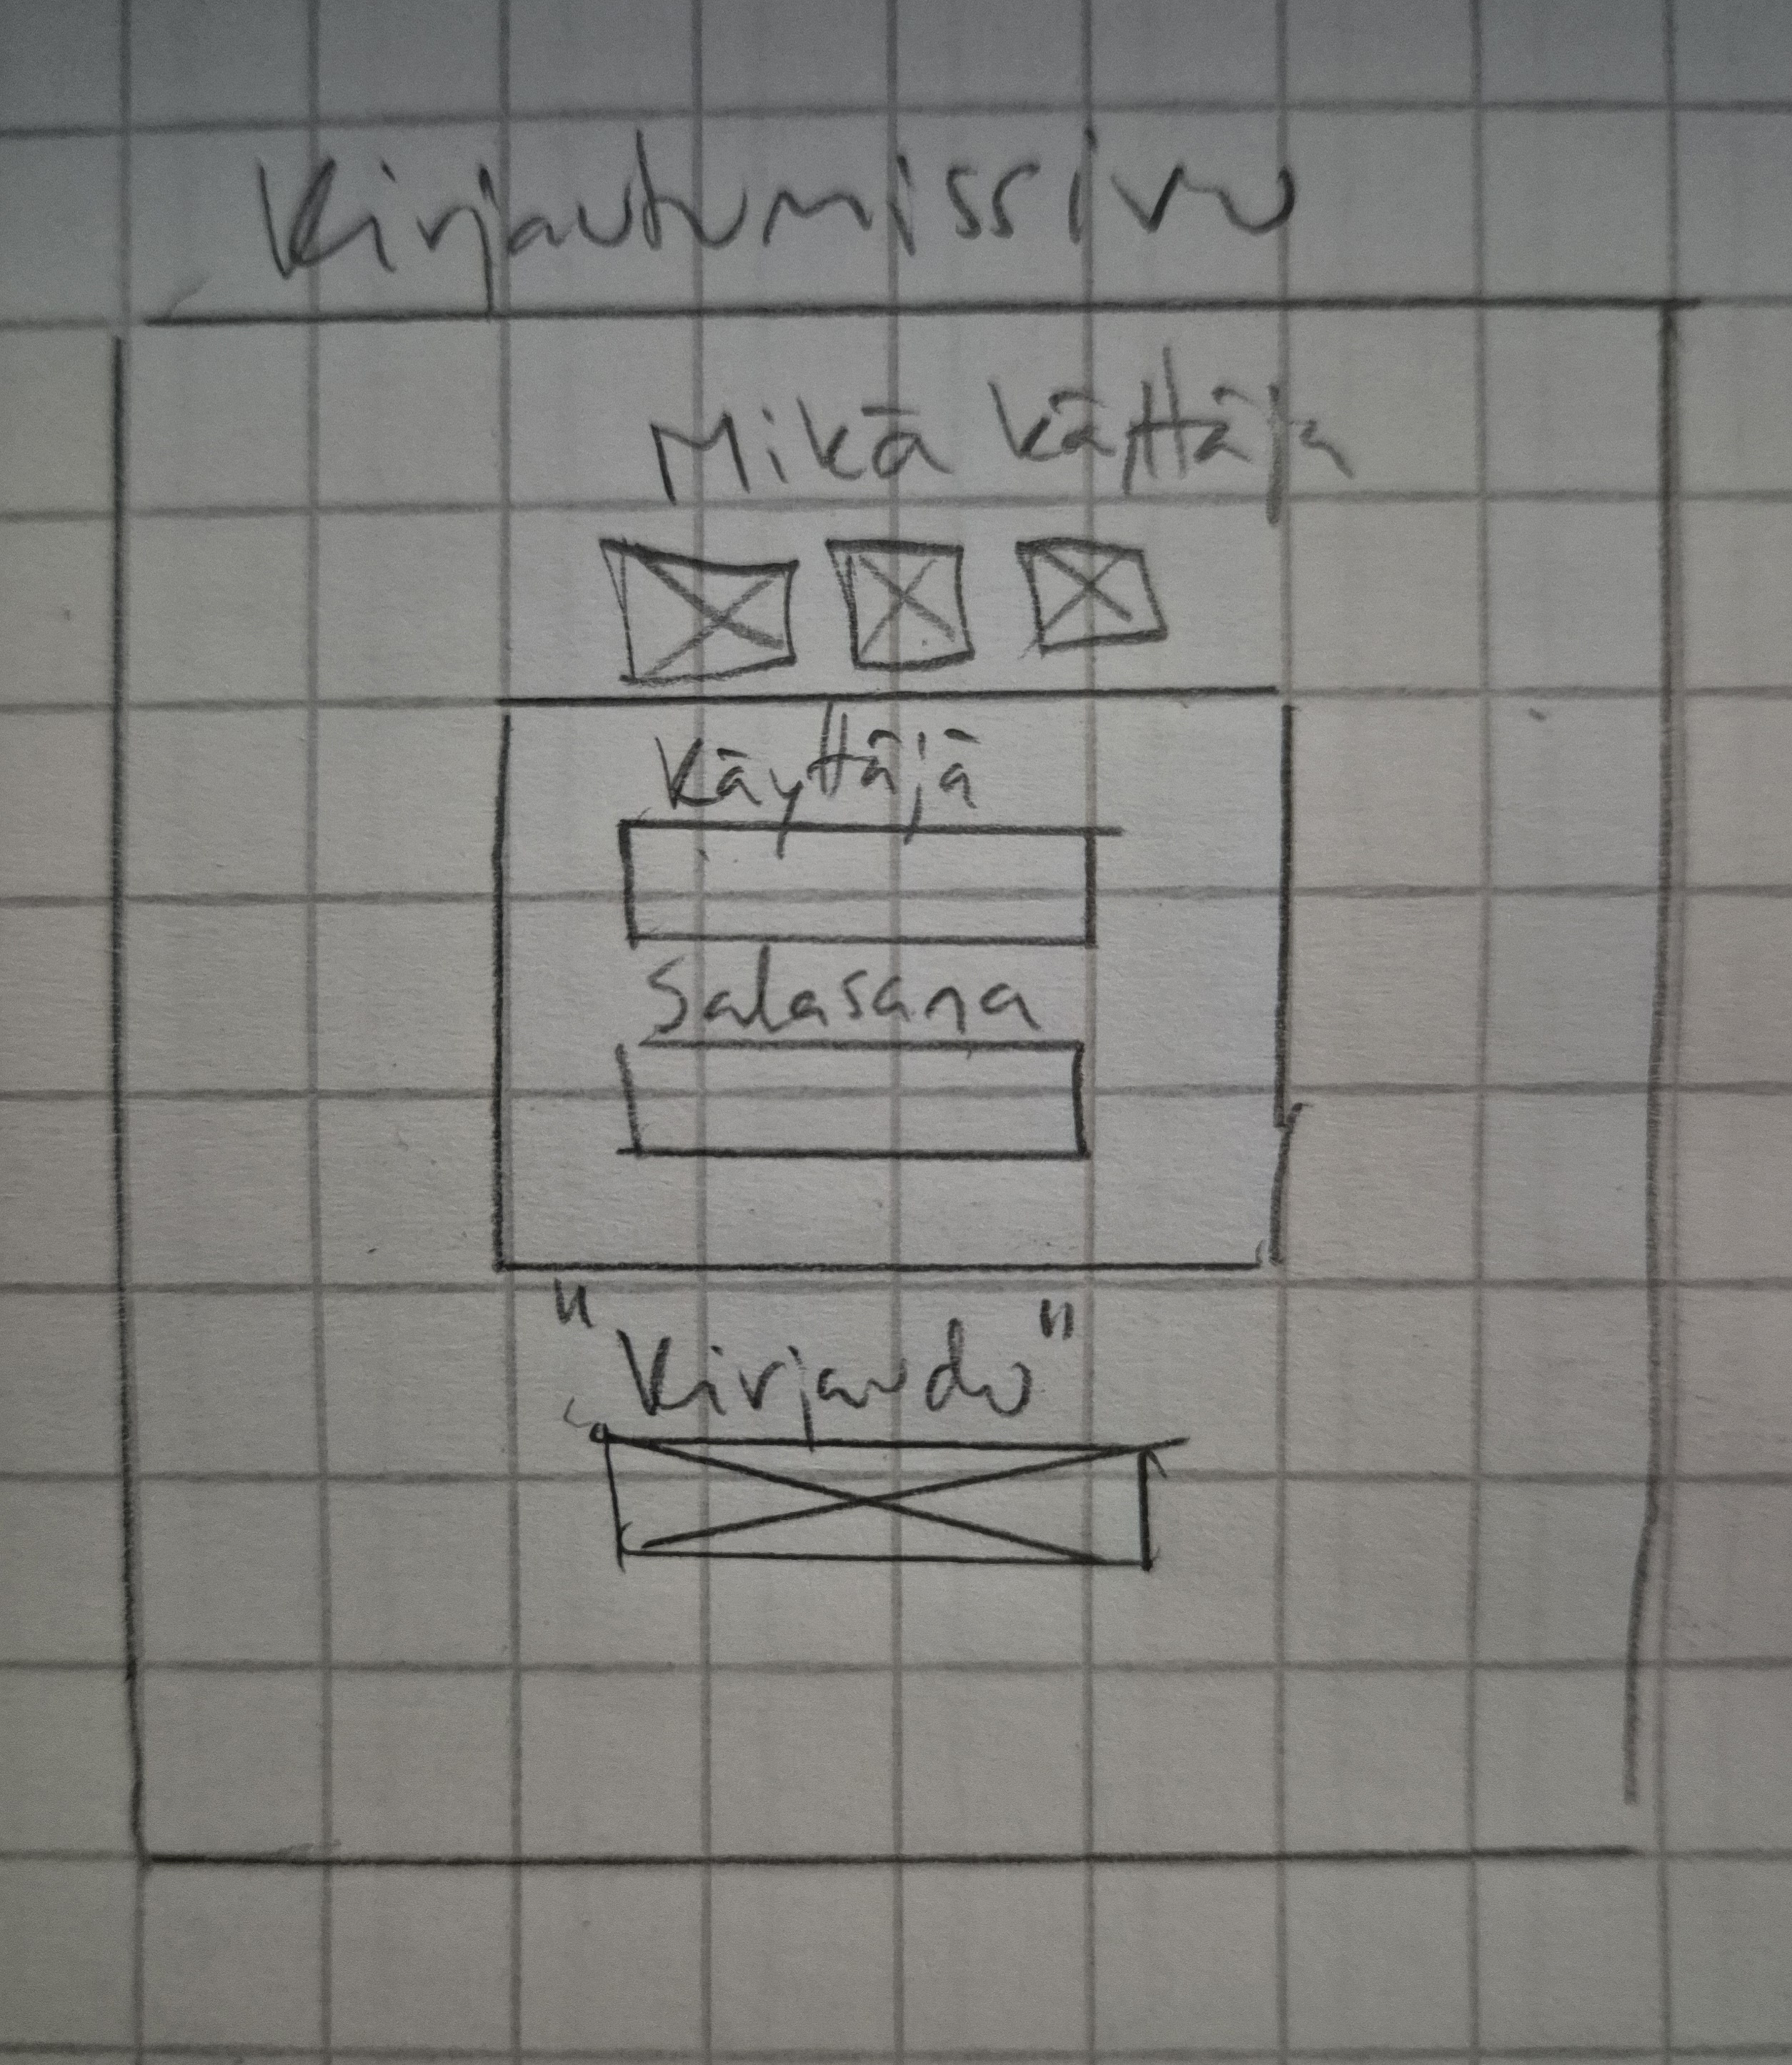 Kirjautumissivu
Mikä käyttäjä
Käyttäjä
Salasana
"Kirjaudu"